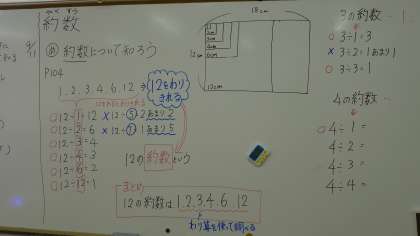 やくすう
約数
め 約数について知ろう
P104
1, 2, 3, 4, 6, 12 ⇒ 12をわりきれる
○12÷1=12
×12÷5=2あまり2
○12÷2=6
×12÷7=1あまり5
○12÷3=4
○12÷4=3
○12÷6=2
○12÷12=1
12の約数という
まとめ
12の約数は 1, 2, 3, 4, 6, 12
わり算を使って調べる
18cm
12cm
3の約数… 1
○ 3÷1=3
× 3÷2=1あまり1
○ 3÷3=1
4の約数…
○4÷1=
4÷2=
4÷3=
4÷4=